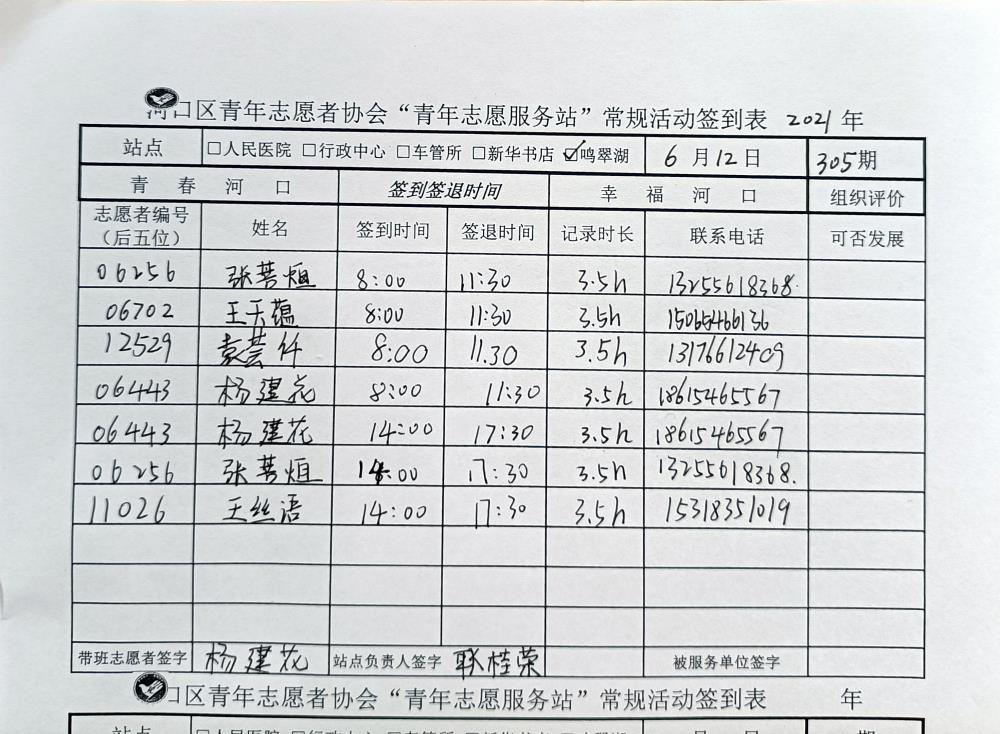 河口区青年志愿者协会“青年志愿服务站”常规活动签到表 2021 年
站点 □人民医院 □行政中心 □车管所 □新华书店 ☑鸣翠湖 6 月 12 日 305期
青 春 河 口 签到签退时间 幸 福 河 口 组织评价
志愿者编号（后五位） 姓名 签到时间 签退时间 记录时长 联系电话 可否发展
06256 张菩烜 8:00 11:30 3.5h 13255618368.
06702 王天蕴 8:00 11:30 3.5h 15065466136
12529 袁芸仟 8:00 11.30 3.5h 13176612409
06443 杨建花 8:00 11:30 3.5h 18615465567
06443 杨建花 14:00 17:30 3.5h 18615465567
06256 张菩烜 14:00 17:30 3.5h 13255618368.
11026 王丝语 14:00 17:30 3.5h 15318351019
带班志愿者签字 杨建花 站点负责人签字 耿桂荣 被服务单位签字
口区青年志愿者协会“青年志愿服务站”常规活动签到表 年
站点 □人民医院 □行政中心 □车管所 □新华书店 □鸣翠湖 月 日 期